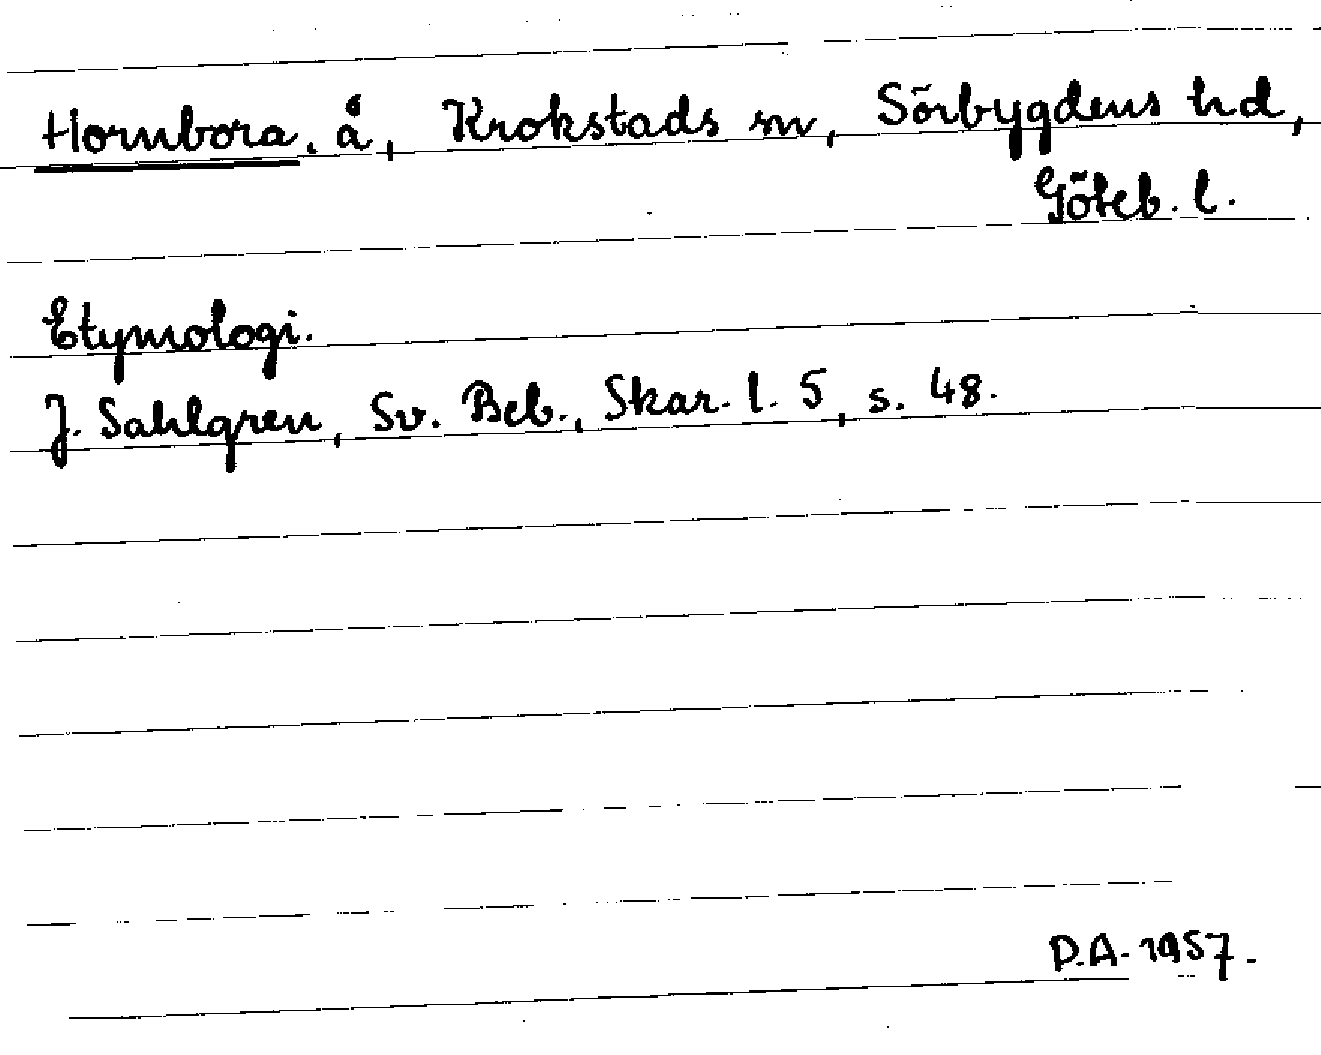 Hornbora. å, Krokstads sn, Sörbygdens hd,
Göteb. l.
Etymologi.
J. Sahlgren, Sv. Beb., Skar. l. 5, s. 48.
D.A. 1957.